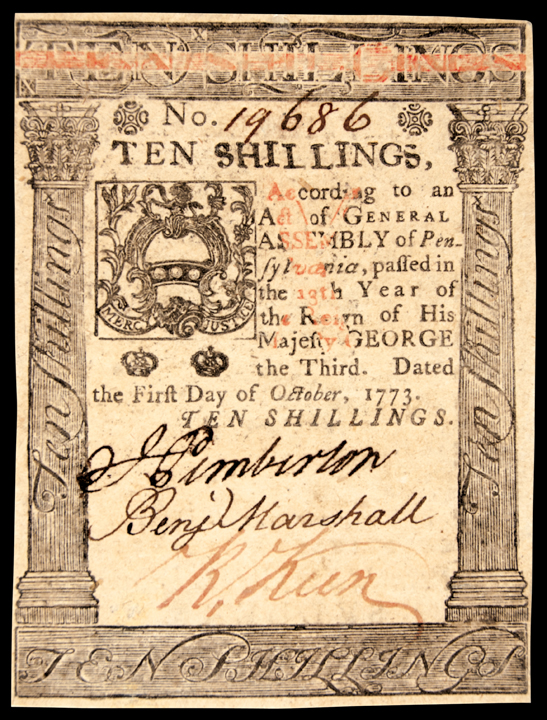 TEN SHILLINGS
No. 19686
TEN SHILLINGS,
According to an
Act of GENERAL
ASSEMBLY of Pen-
ſylvania, paſſed in
the 13th Year of
the Reign of His
Majeſty GEORGE
the Third. Dated
the Firſt Day of October, 1773.
TEN SHILLINGS.
MERCY JUSTICE
Ten Shillings
Ten Shillings
J Pemberton
Benj Marshall
R. Keen
TEN SHILLINGS